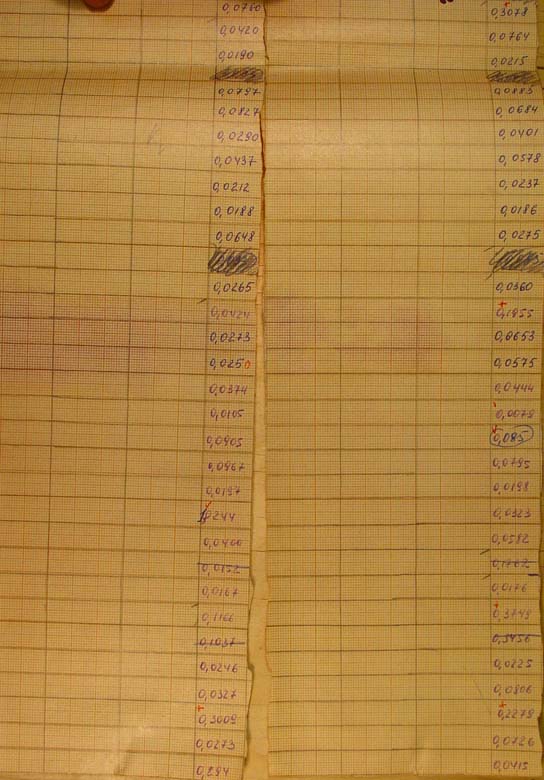 0,0760
0,0420
0,0190
0,0797
0,0827
0,0290
0,0437
0,0212
0,0188
0,0648
0,0265
0,0424
0,0273
0,0250
0,0374
0,0105
0,0905
0,0967
0,0197
0,0400
0,0152
0,0167
0,1166
0,1037
0,0246
0,0327
0,3009
0,0273
0,3078
0,0764
0,0215
0,0883
0,0684
0,0401
0,0578
0,0237
0,0186
0,0275
0,0360
0,1955
0,0653
0,0575
0,0444
0,0079
0,085
0,0795
0,0198
0,0323
0,0582
0,1762
0,0176
0,3749
0,3456
0,0225
0,0806
0,2279
0,0726
0,0415